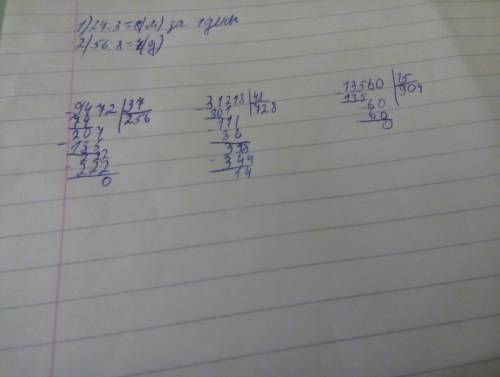 1) 24:3=8(м) за 1 день
2) 56:8=7(д)
9472 | 37
74 | 256
207
185
222
222
0
31218 | 43
301 | 728
111
86
358
344
14
13560 | 15
135 | 904
60
60
0